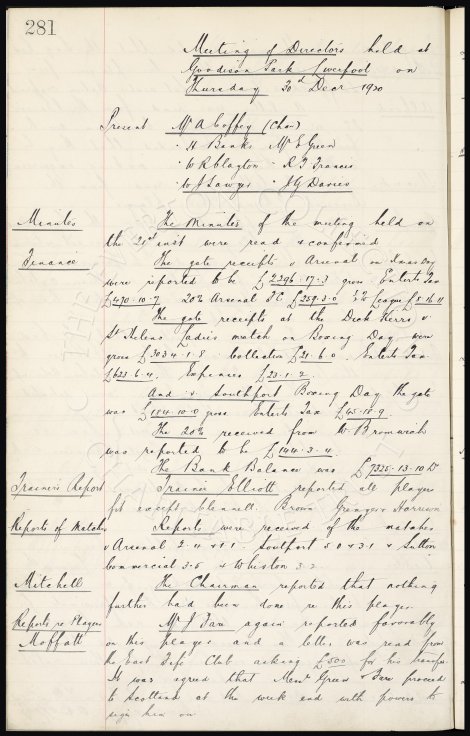 281
Meeting of Directors held at
Goodison Park Liverpool on
Thursday 30th Decr 1920
Present Mr A Coffey (Chair)
" H Banks Mr E Green
" W R Clayton " R T Francis
" W J Sawyer " J G Davies
Minutes The Minutes of the meeting held on
the 21st inst were read & confirmed
Finance The gate receipts v Arsenal on Xmas Day
were reported to be £2396.17.3 gross Enterts Tax
£470.10.7 20% Arsenal FC £359.3.0 League
The gate receipts at the Dick Kerrs v
St Helens Ladies match on Boxing Day were
gross £3034.1.8 Collection £21.6.0 Enterts Tax
£623.6.4 Expenses £23.1.2
And v Southport Boxing Day the gate
was £184.10.0 gross Enterts Tax £45.18.9
The 20% received from W Bromwich
was reported to be £144.3.4
The Bank Balance was £7325.13.10
Trainer's Report Trainer Elliott reported all players
fit except Clennell Brown Grenyer & Harrison
Reports of Matches Reports were received of the matches
v Arsenal 2.4 & 1.1 Southport 5.0 & 3.1 & Sutton
Commercial 3.6 & Whiston 3.2
Mitchell The Chairman reported that nothing
further had been done re this player
Reports re Players Mr J Fare again reported favorably
Moffatt on this player and a letter was read from
the East Fife Club asking £500 for his transfer
It was agreed that Messrs Green & Fare proceed
to Scotland at the week end with powers to
sign him on